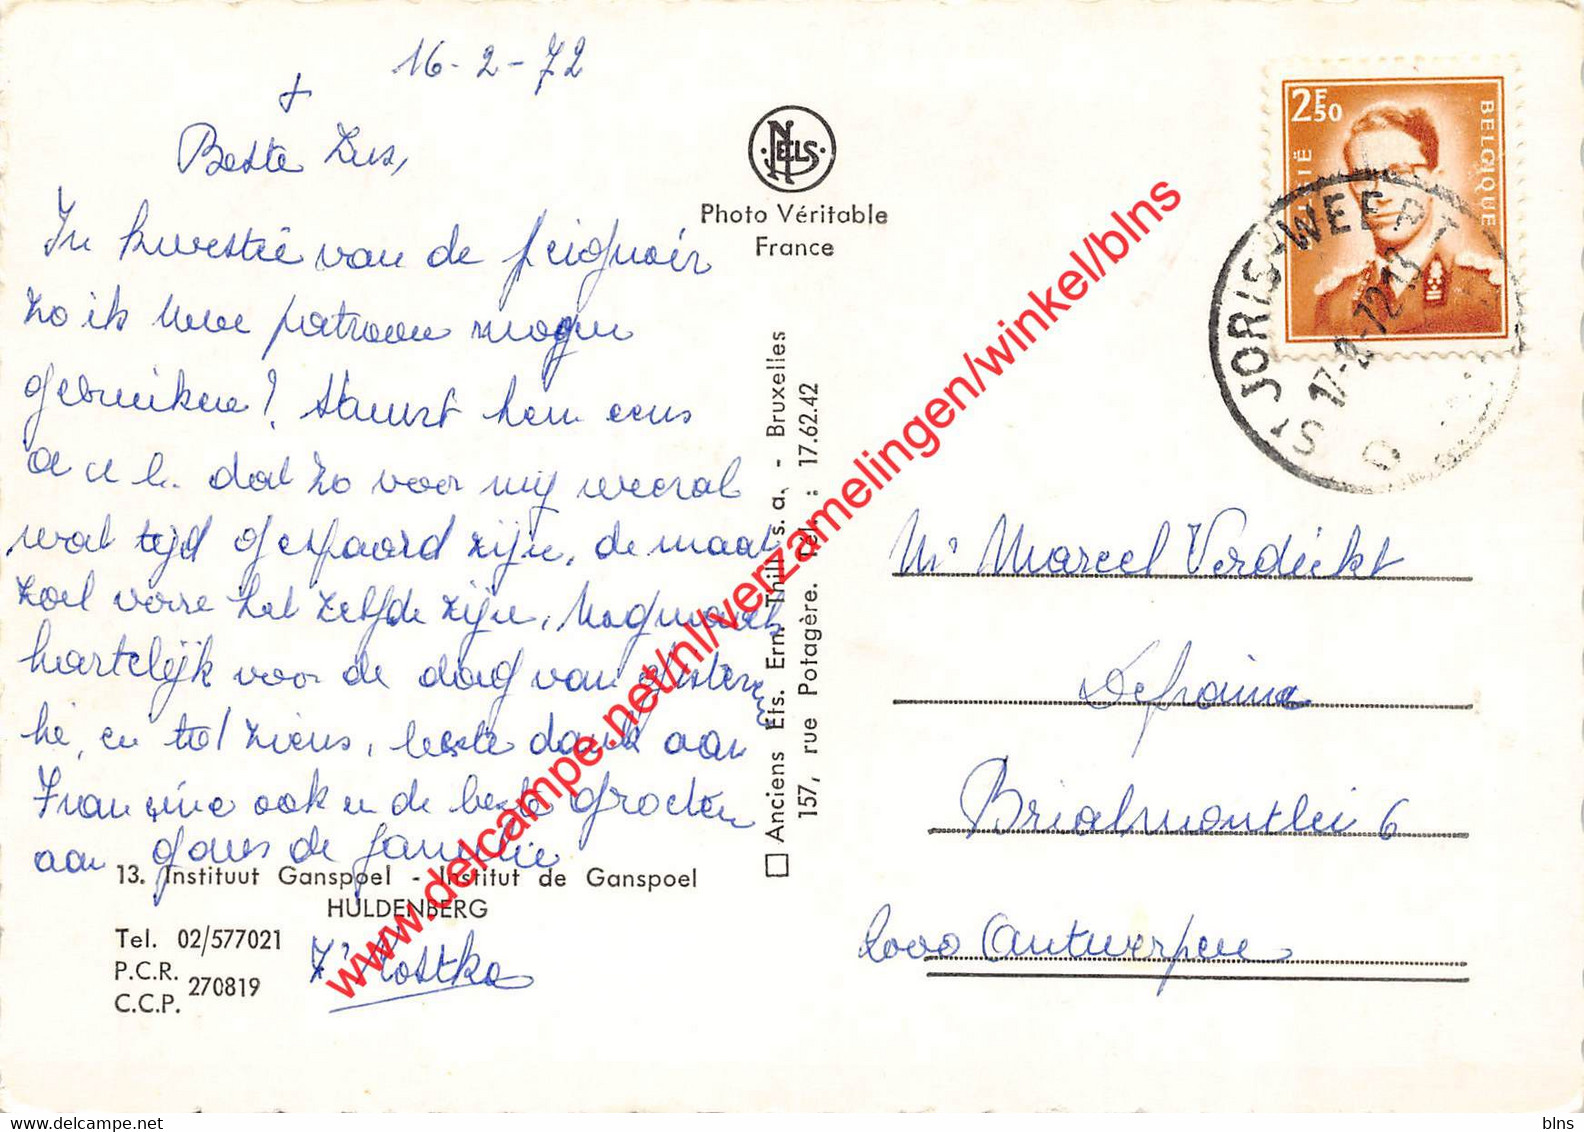 16-2-72
+
Beste Zus,
In kwestie van de peignoir
zo ik uwe patroon mogen
gebruiken? Stuurt hem eens
a u b. dat zo voor mij weeral
wat tijd gespaard zijn, de maat
zoel verre het zelfde zijn, Nogmaals
hartelijk voor de dag van gisteren
hé, en tot ziens, beste dank aan
Francine ook en de beste groeten
aan gans de familie
Zr Kostka
13. Instituut Ganspoel - Institut de Ganspoel
HULDENBERG
Tel. 02/577021
P.C.R. 270819
C.C.P.
NELS
Photo Véritable
France
Anciens Ets. Ern. Thill s.a. - Bruxelles
157, rue Potagère. Tél. : 17.62.42
2F50
BELGIË
BELGIQUE
ST JORIS-WEERT
17-2-72 13
Mr Marcel Verdickt
Defraine
Brialmontlei 6
2000 Antwerpen
www.delcampe.net/nl/verzamelingen/winkel/blns
www.delcampe.net
blns